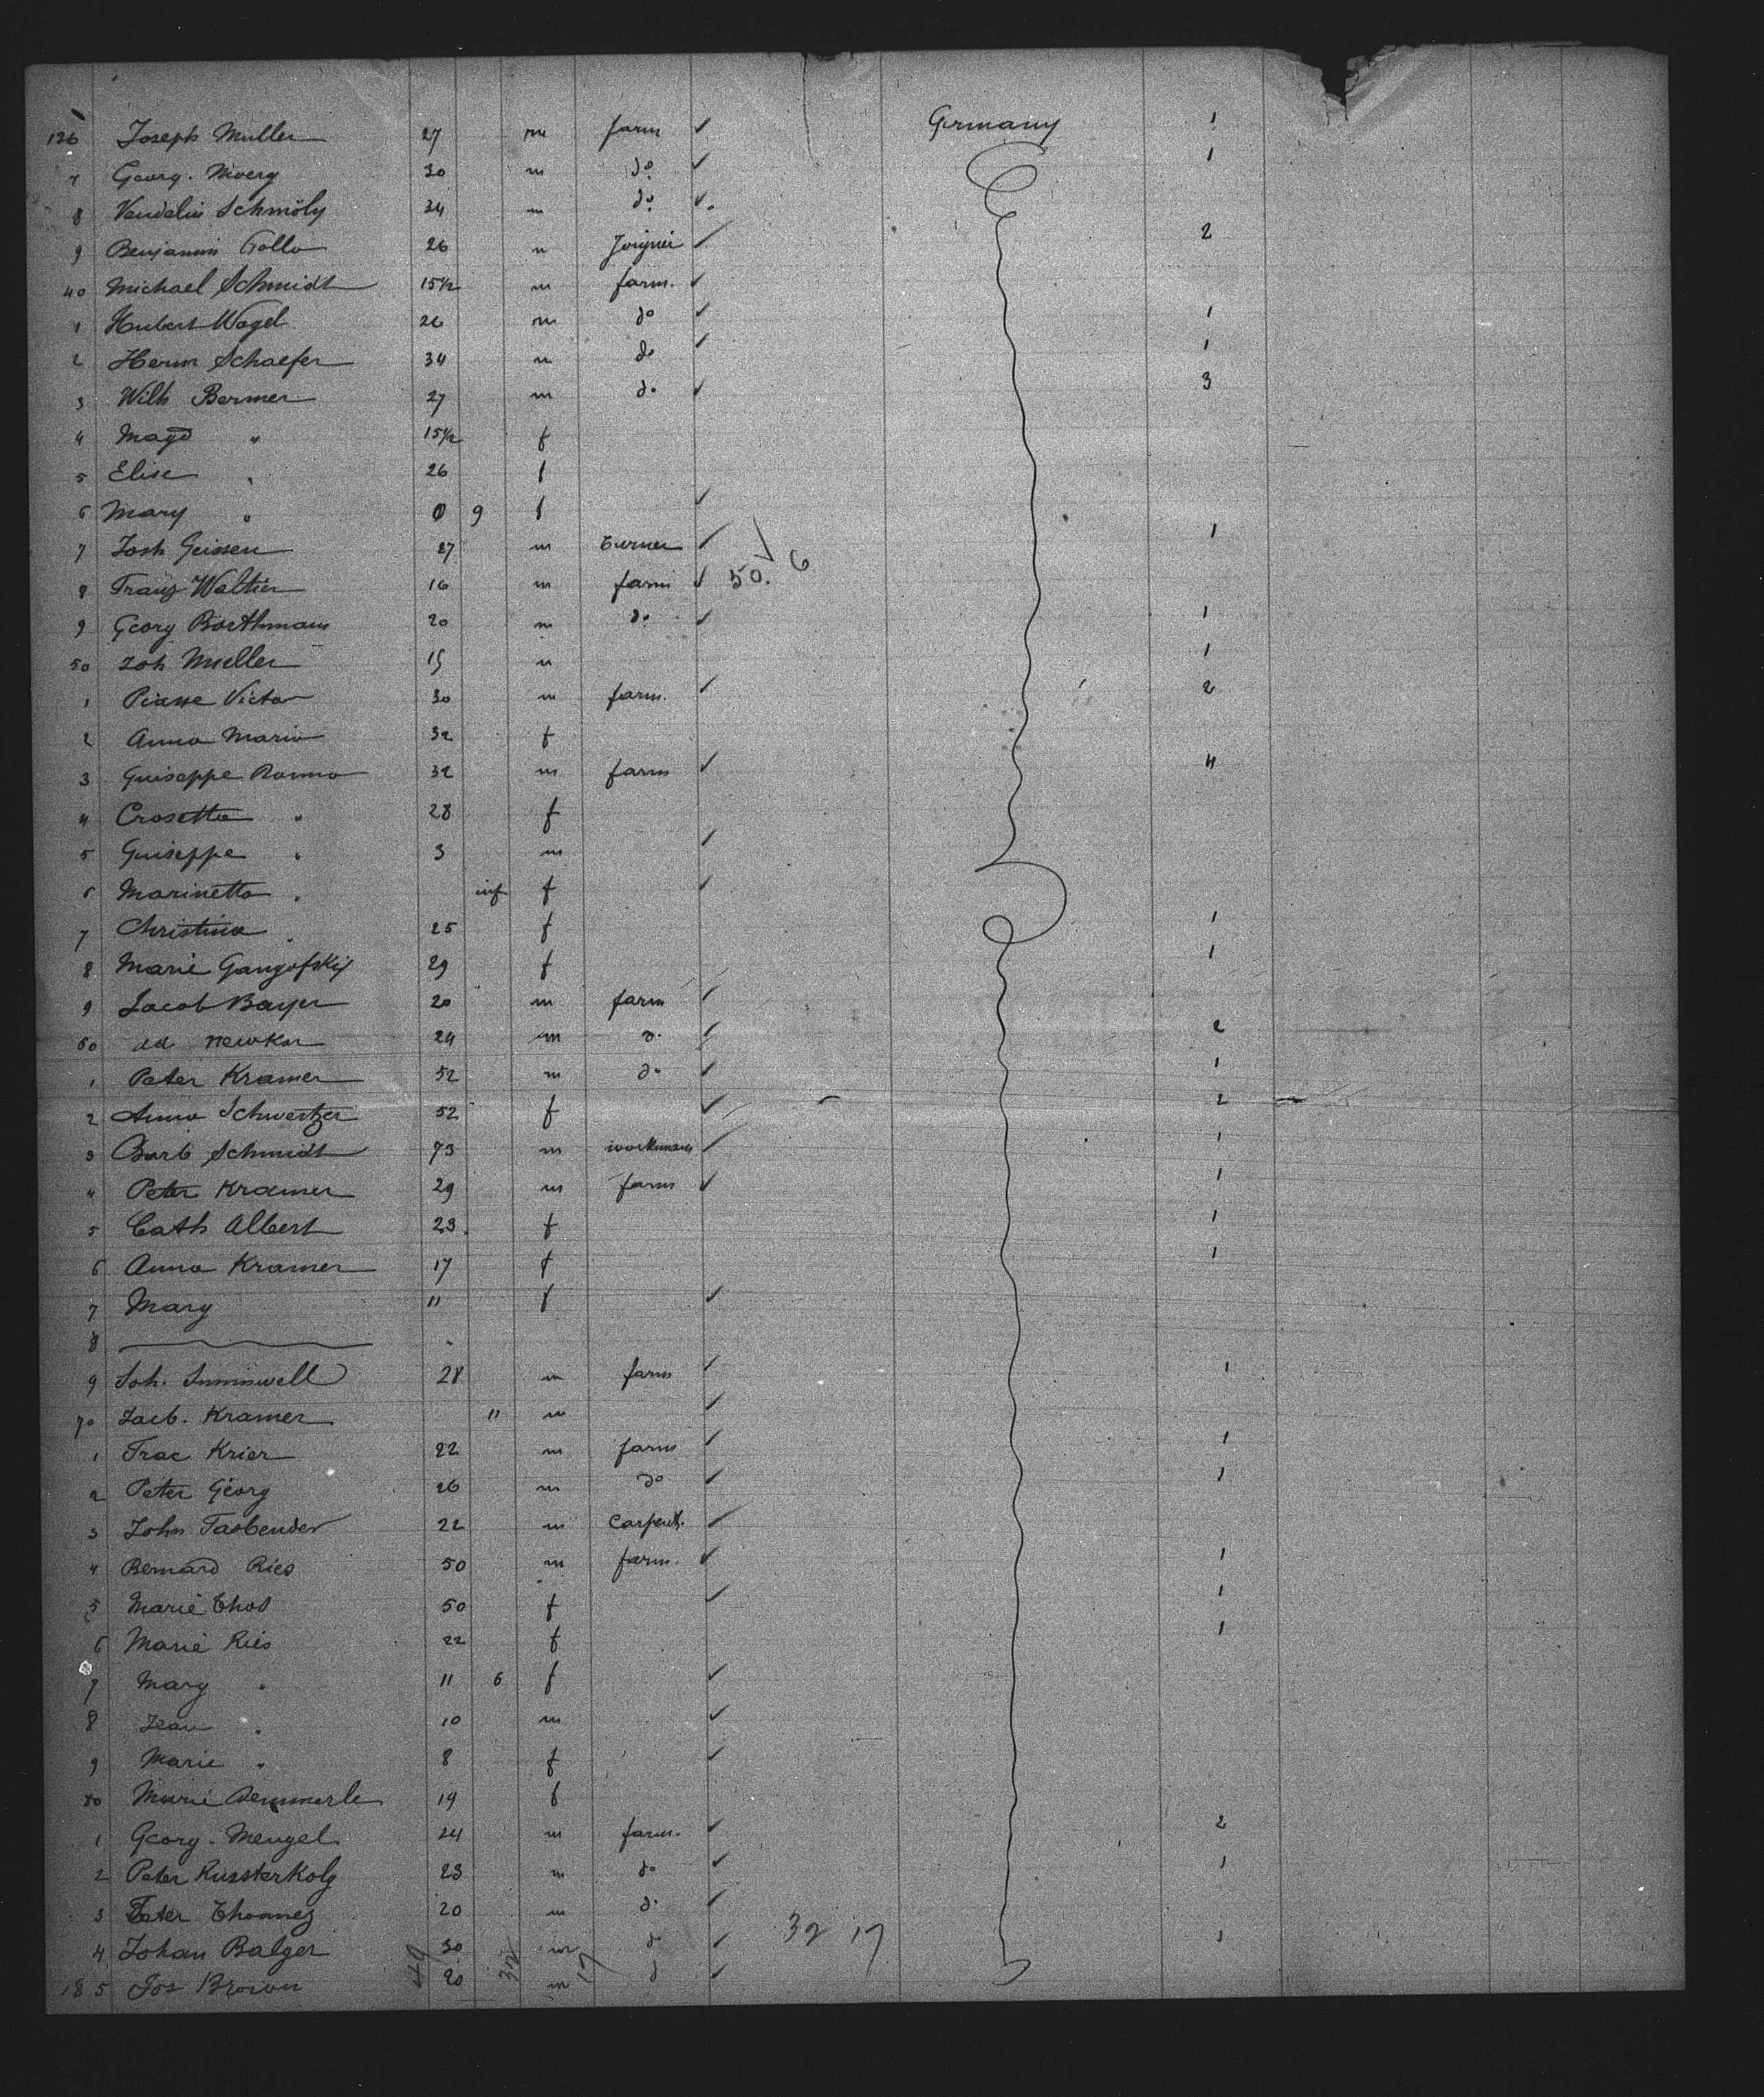 136 Joseph Muller 27 m farm ✓ Germany 1
7 Georg. Moerg 30 m do ✓ 1
8 Vendelin Schmöly 34 m do ✓
9 Benjamin Gollo 26 m Joignier ✓ 2
40 Michael Schmidt 15½ m farm. ✓
1 Hubert Wagel 26 m do ✓ 1
2 Herm Schaefer 34 m do ✓ 1
3 Wilh Bermer 27 m do ✓ 3
4 Magd " 15½ f
5 Elise " 26 f
6 Mary " 0 9 f ✓
7 Josh Geissen 27 m turner ✓ 1
8 Franz Waltier 16 m farm ✓ 50. 6
9 Georg Borthmann 20 m do ✓ 1
50 Joh Muller 15 m 1
1 Piasse Victor 30 m farm. ✓ 2
2 Anna Maria 32 f
3 Guiseppe Romno 32 m farm ✓ 4
4 Crosetta " 28 f
5 Guiseppe " 3 m ✓
6 Marinetta " inf f ✓
7 Christina " 25 f 1
8 Marie Gangofskij 29 f 1
9 Jacob Bayer 20 m farm ✓
60 Ad Newkar 24 m do ✓ 2
1 Peter Kramer 52 m do ✓ 1
2 Anna Schwertzer 52 f ✓ 2
3 Barb Schmidt 73 m workman ✓ 1
4 Peter Kramer 29 m farm ✓ 1
5 Cath Albert 23. f 1
6 Anna Kramer 17 f 1
7 Mary 11 f ✓
8
9 Joh. Inniswell 28 m farm ✓ 1
70 Jacb. Kramer 11 m ✓
1 Frac Krier 22 m farm ✓ 1
2 Peter Georg 26 m do ✓ 1
3 John Fasbender 22 m Carpent. ✓
4 Bernard Ries 50 m farm. ✓ 1
5 Marie Thos 50 f ✓ 1
6 Marie Ries 22 f 1
7 Mary " 11 6 f ✓
8 Jean " 10 m ✓
9 Marie " 8 f ✓
80 Marie Aemmerle 19 f
1 Georg. Mengel 24 m farm. ✓ 2
2 Peter Kussterkolg 23 m do ✓ 1
3 Peter Thommes 20 m do ✓
4 Johan Balger 30 m do ✓ 32 17 1
185 Jos Brown 20 m d ✓
49 32 17